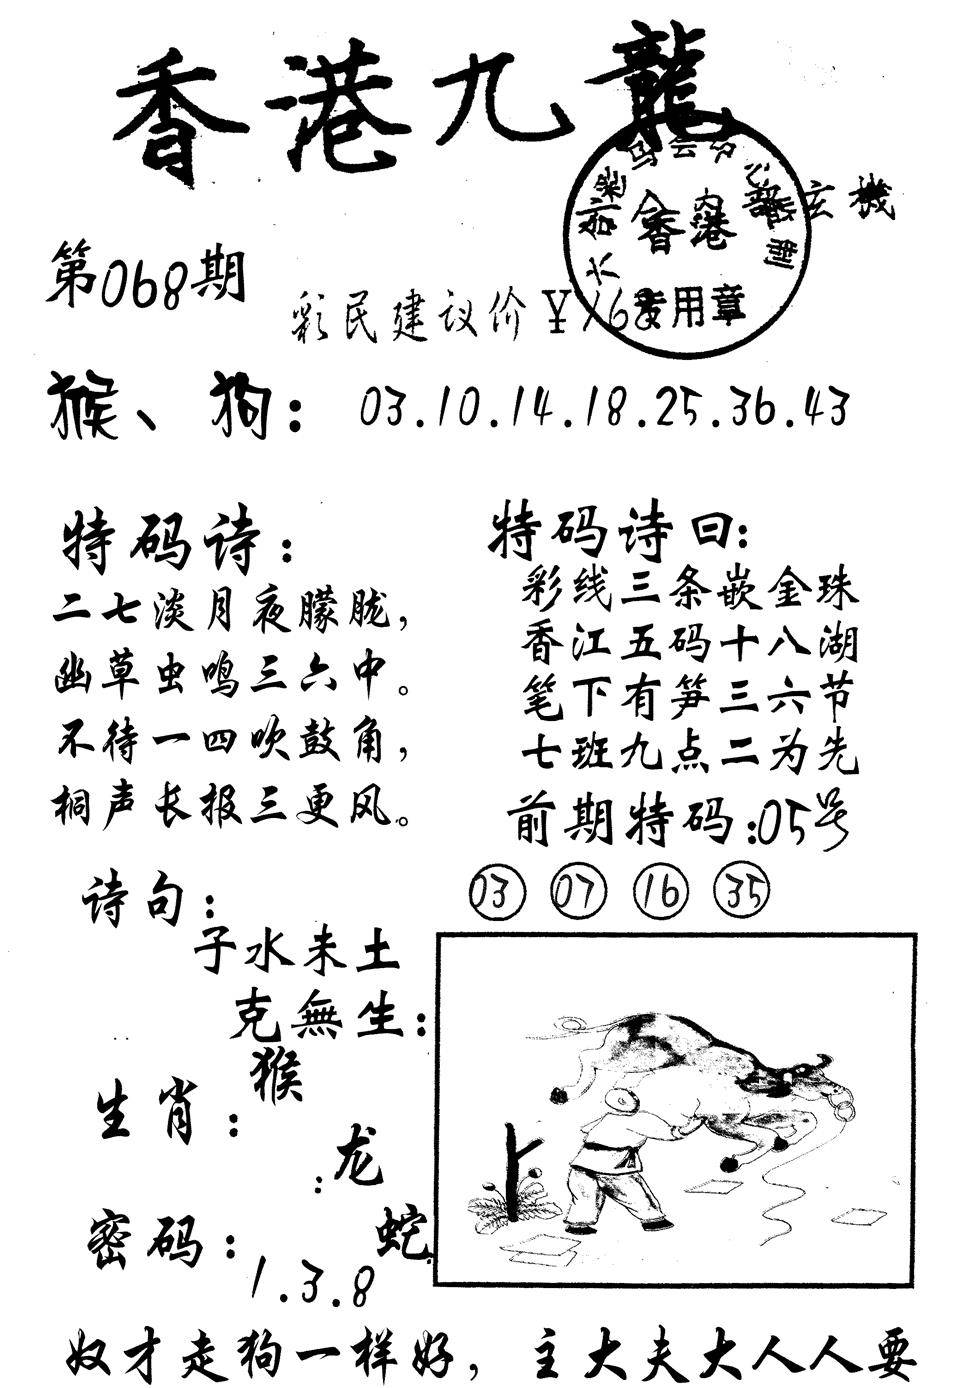 香港九龍
玄機
香港
专用章
第068期
彩民建议价￥168
猴、狗：03.10.14.18.25.36.43
特码诗：
二七淡月夜朦胧，
幽草虫鸣三六中。
不待一四吹鼓角，
桐声长报三更风。
特码诗曰：
彩线三条嵌金珠
香江五码十八湖
笔下有笋三六节
七班九点二为先
前期特码：05号
03 07 16 35
诗句：
子水未土
克無生：
生肖：
猴
：龙
蛇
密码：
1.3.8
卜
奴才走狗一样好，主大夫大人人要